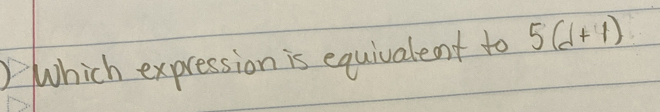 ) Which expression is equivalent to 5(d+1)